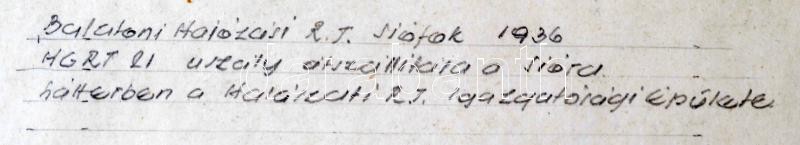 Balatoni Hajózási R.T. Siófok 1936
HGRT 21 uszály átszállítása a Sióra
háttérben a Halászati R.T. Igazgatósági épülete